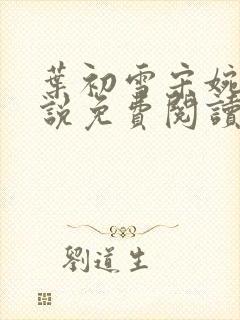 葉初雪宋婉
說免費閱讀
劉道生